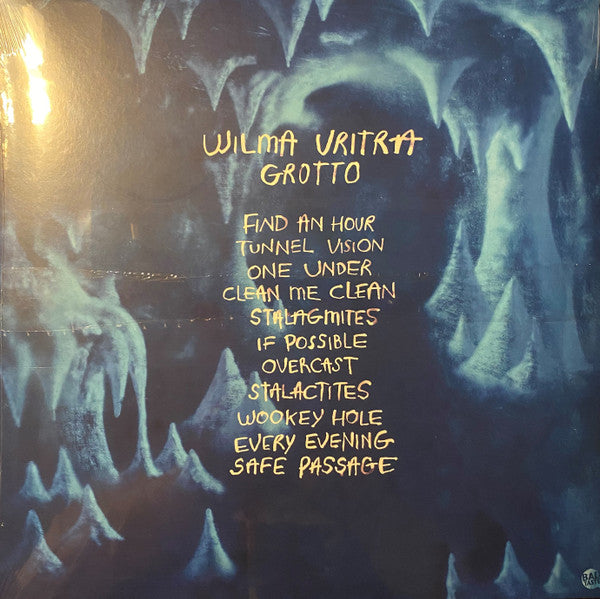 WILMA VRITRA
GROTTO
FIND AN HOUR
TUNNEL VISION
ONE UNDER
CLEAN ME CLEAN
STALAGMITES
IF POSSIBLE
OVERCAST
STALACTITES
WOOKEY HOLE
EVERY EVENING
SAFE PASSAGE
BAD
TASTE